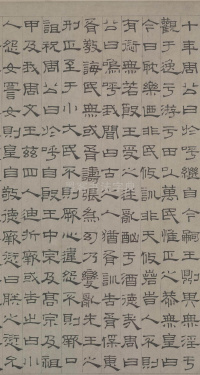 十年周公曰於呼繼自今嗣王則其無淫于
觀于逸于游于田以萬民惟正之共無皇曰
今日耽樂乃非民攸訓非天攸若時人丕則
有愆無若殷王受之迷亂酗于酒德哉周
公曰嗚呼我聞曰古之人猶胥訓告胥保惠
胥教誨民無或胥譸張為幻乃變亂先王之
正刑至于小大民不則厥心違怨不則厥口
詛祝周公曰於呼自殷王中宗及高宗及祖
甲及我周文王茲四人迪哲厥或告之曰小
人怨女詈女則皇自敬德厥愆曰朕之愆允